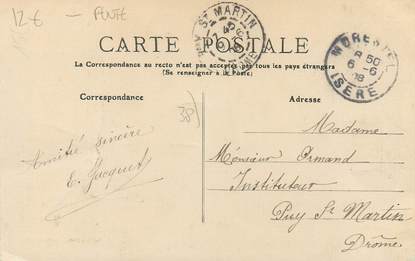 12 € — PENTE
PUY ST MARTIN
DROME
CARTE POSTALE
MORESTEL
8 50
6 - 6
08
ISERE
La Correspondance au recto n'est pas acceptée par tous les pays étrangers
(Se renseigner à la Poste)
Correspondance
38)
Adresse
Amitié sincère
E. Jacquet
Madame
Monsieur Armand
Instituteur
Puy St Martin
Drôme